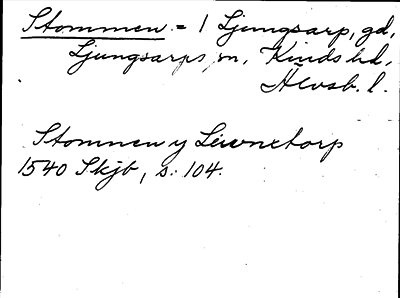 Stommen = 1 Ljungsarp, gd,
Ljungsarps sn, Kinds hd,
Älvsb. l.
Stomnen y Liwnetorp
1540 Skjb, s. 104.